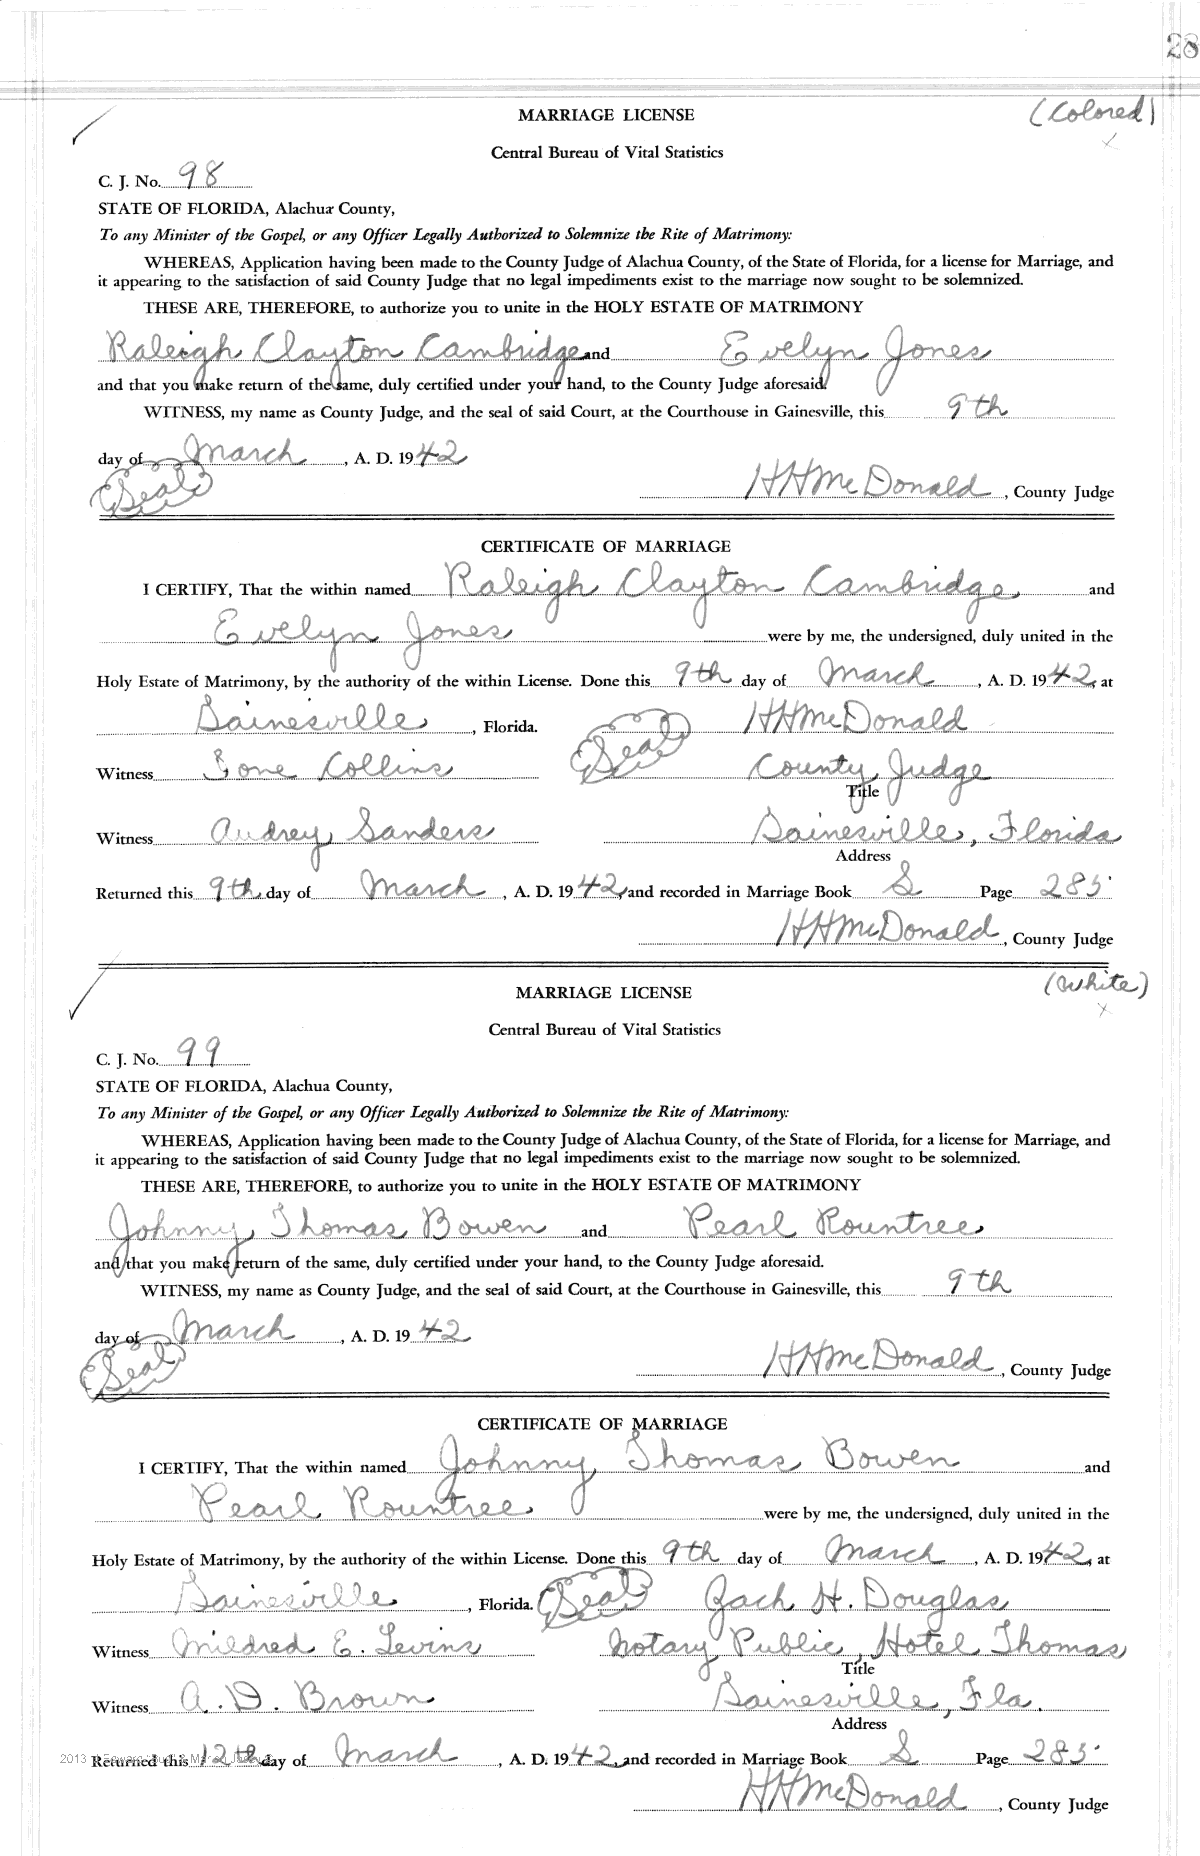 28
MARRIAGE LICENSE
(Colored)
Central Bureau of Vital Statistics
C. J. No. 98
STATE OF FLORIDA, Alachua County,
To any Minister of the Gospel, or any Officer Legally Authorized to Solemnize the Rite of Matrimony:
WHEREAS, Application having been made to the County Judge of Alachua County, of the State of Florida, for a license for Marriage, and
it appearing to the satisfaction of said County Judge that no legal impediments exist to the marriage now sought to be solemnized.
THESE ARE, THEREFORE, to authorize you to unite in the HOLY ESTATE OF MATRIMONY
Raleigh Clayton Cambridge and Evelyn Jones
and that you make return of the same, duly certified under your hand, to the County Judge aforesaid.
WITNESS, my name as County Judge, and the seal of said Court, at the Courthouse in Gainesville, this 9th
day of March, A. D. 1942
(Seal) HHMcDonald, County Judge
CERTIFICATE OF MARRIAGE
I CERTIFY, That the within named Raleigh Clayton Cambridge and
Evelyn Jones were by me, the undersigned, duly united in the
Holy Estate of Matrimony, by the authority of the within License. Done this 9th day of March, A. D. 1942, at
Gainesville, Florida. (Seal) HHMcDonald
Witness Ione Collins County Judge
Title
Witness Audrey Sanders Gainesville, Florida
Address
Returned this 9th day of March, A. D. 1942, and recorded in Marriage Book S Page 285
HHMcDonald, County Judge
(White)
MARRIAGE LICENSE
Central Bureau of Vital Statistics
C. J. No. 99
STATE OF FLORIDA, Alachua County,
To any Minister of the Gospel, or any Officer Legally Authorized to Solemnize the Rite of Matrimony:
WHEREAS, Application having been made to the County Judge of Alachua County, of the State of Florida, for a license for Marriage, and
it appearing to the satisfaction of said County Judge that no legal impediments exist to the marriage now sought to be solemnized.
THESE ARE, THEREFORE, to authorize you to unite in the HOLY ESTATE OF MATRIMONY
Johnny Thomas Bowen and Pearl Rountree
and that you make return of the same, duly certified under your hand, to the County Judge aforesaid.
WITNESS, my name as County Judge, and the seal of said Court, at the Courthouse in Gainesville, this 9th
day of March, A. D. 1942
(Seal) HHMcDonald, County Judge
CERTIFICATE OF MARRIAGE
I CERTIFY, That the within named Johnny Thomas Bowen and
Pearl Rountree were by me, the undersigned, duly united in the
Holy Estate of Matrimony, by the authority of the within License. Done this 9th day of March, A. D. 1942, at
Gainesville, Florida. (Seal) Zach H. Douglas
Witness Mildred E. Levins Notary Public, Hotel Thomas
Title
Witness A. D. Brown Gainesville, Fla.
Address
2013
Returned this 12th day of March, A. D. 1942, and recorded in Marriage Book S Page 285
HHMcDonald, County Judge